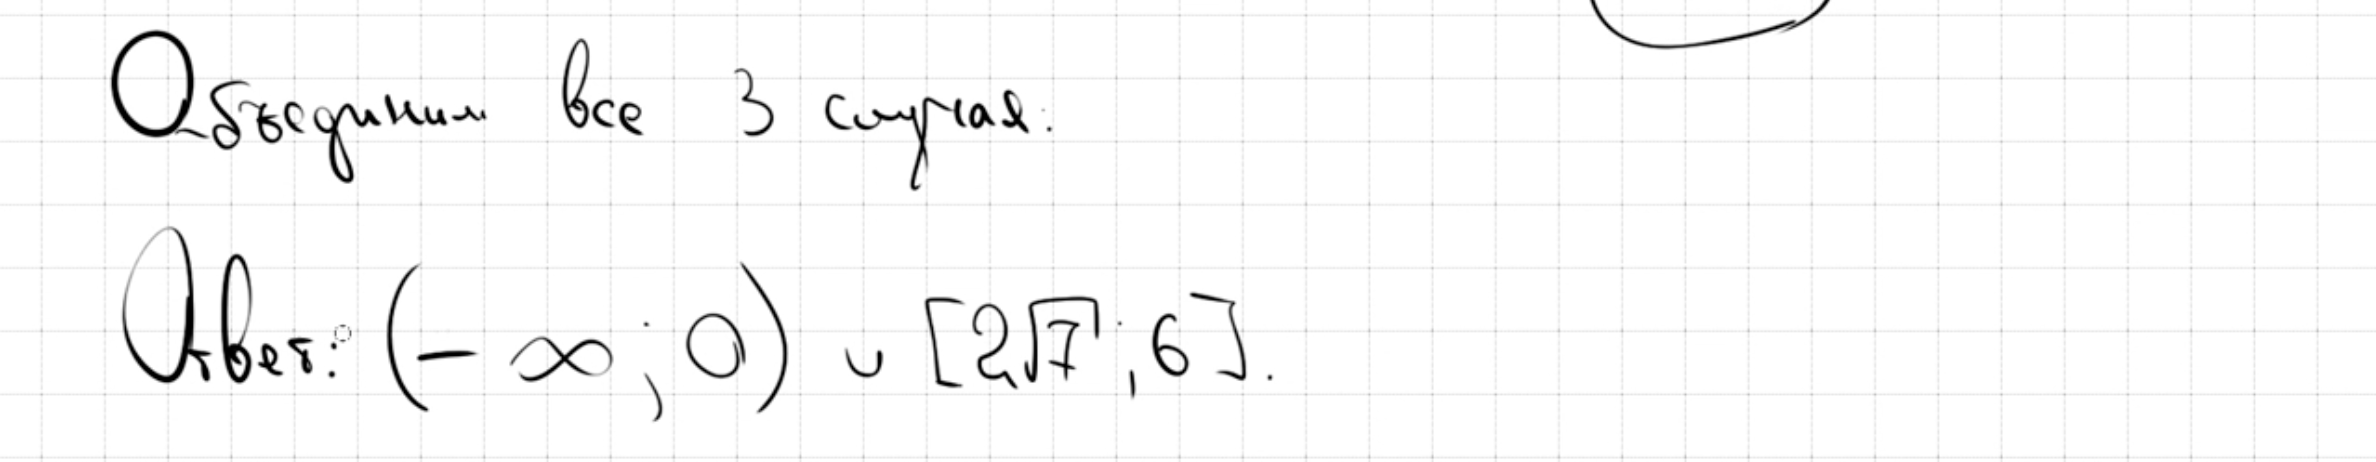 Объединим все 3 случая:
Ответ: (-∞; 0) ∪ [2√7; 6].